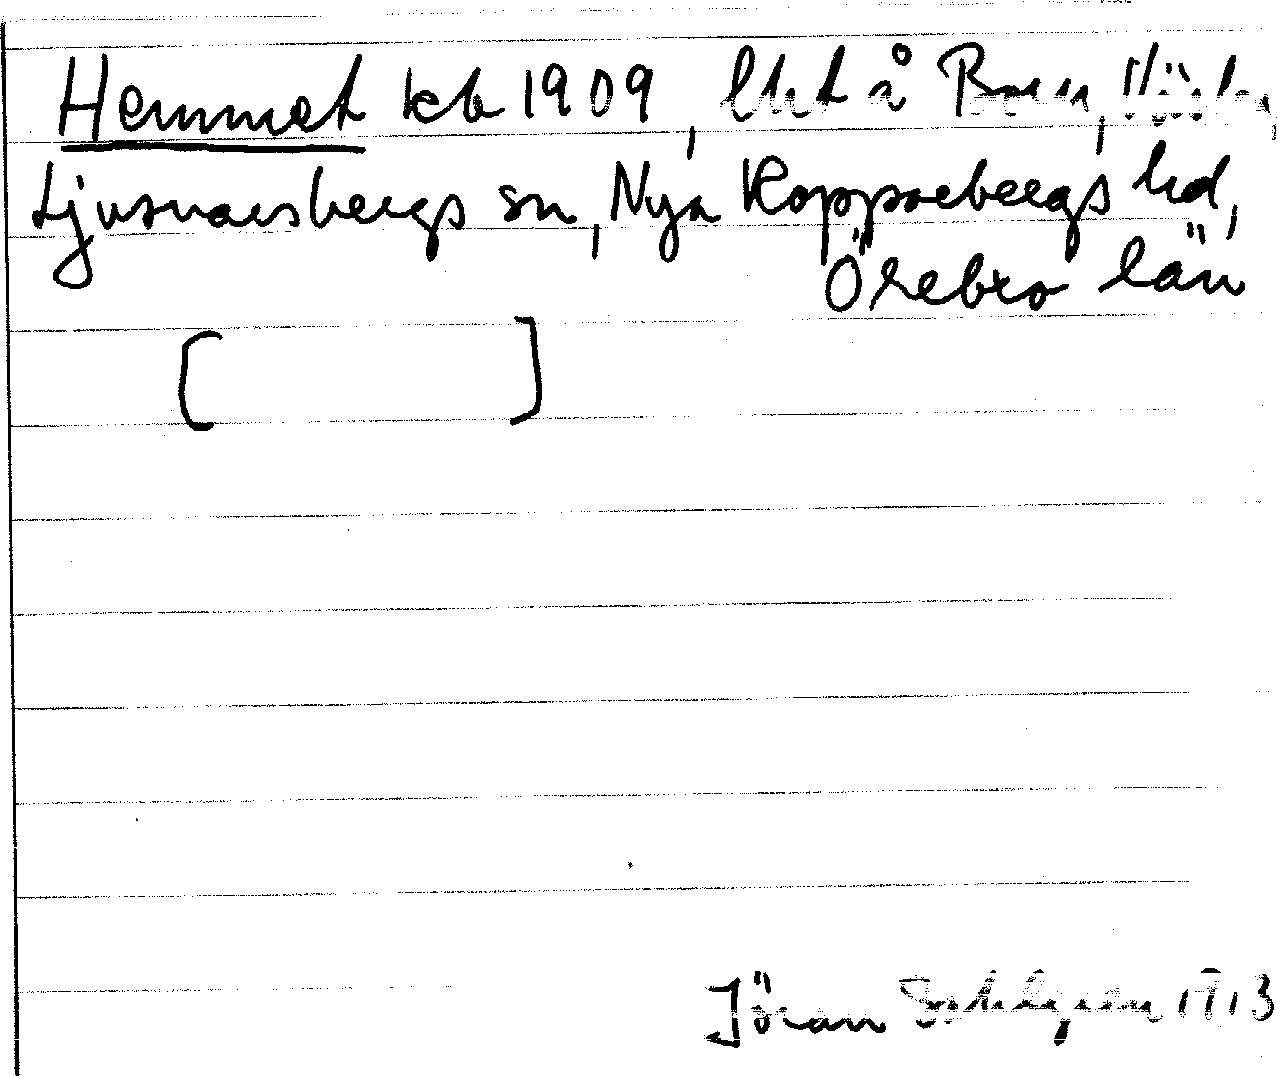 Hemmet kb 1909, lht å
Ljusnarsbergs sn, Nya Kopparbergs hd,
Örebro län
[ ]
Jöran Sahlgren 1913